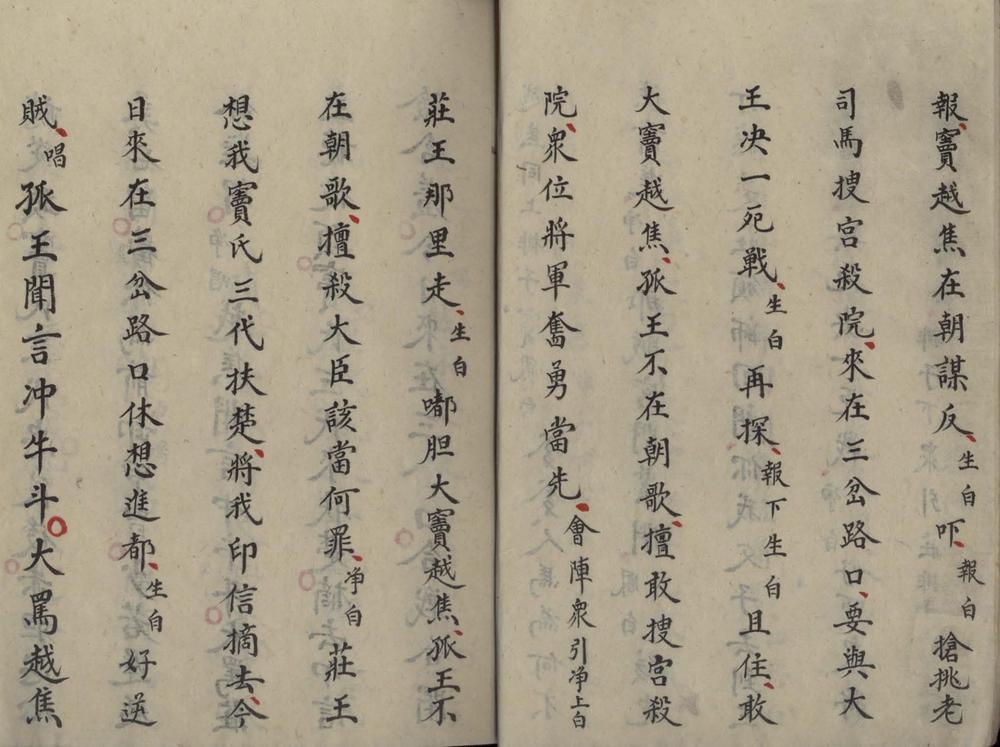 報、竇越焦在朝謀反、生白吓、報白搶挑老
司馬搜宮殺院、來在三岔路口、要與大
王决一死戰、生白再探、報下生白且住、敢
大竇越焦、孤王不在朝歌、擅敢搜宮殺
院、衆位將軍奮勇當先、會陣衆引净上白
莊王那里走、生白嘟胆大竇越焦、孤王不
在朝歌、擅殺大臣該當何罪、净白莊王
想我竇氏三代扶楚、將我印信摘去、今
日來在三岔路口休想進都、生白好逆
賊、唱孤王聞言冲牛斗。大罵越焦